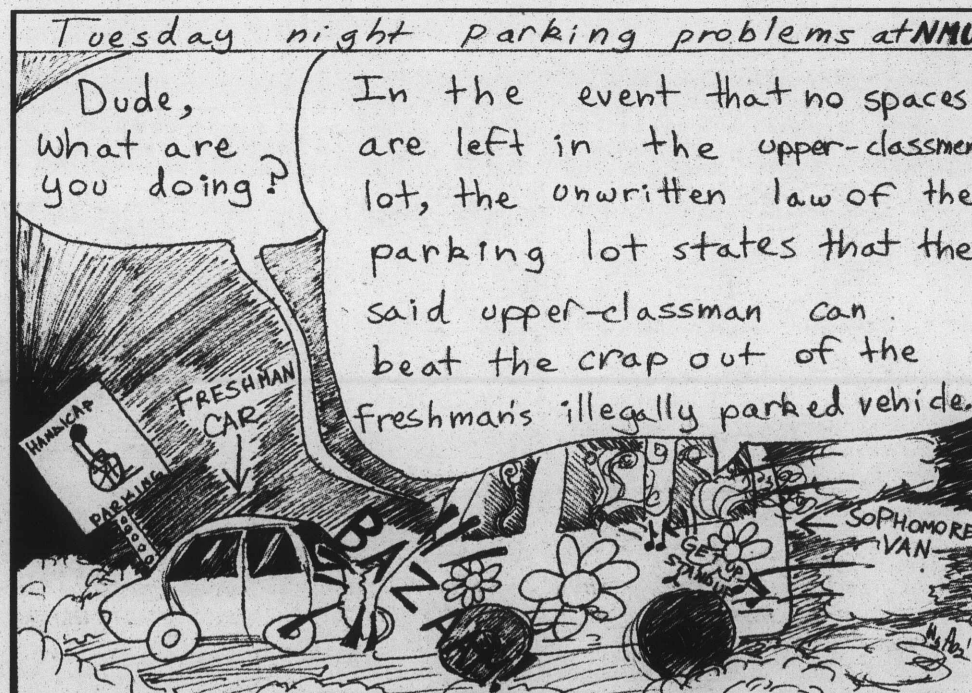 Tuesday night parking problems at NMU
Dude,
what are
you doing?
In the event that no spaces
are left in the upper-classmen
lot, the unwritten law of the
parking lot states that the
said upper-classman can
beat the crap out of the
freshman's illegally parked vehicle.
HANDICAP
PARKING
FRESHMAN
CAR
GET UP
STAND UP
SOPHOMORE
VAN